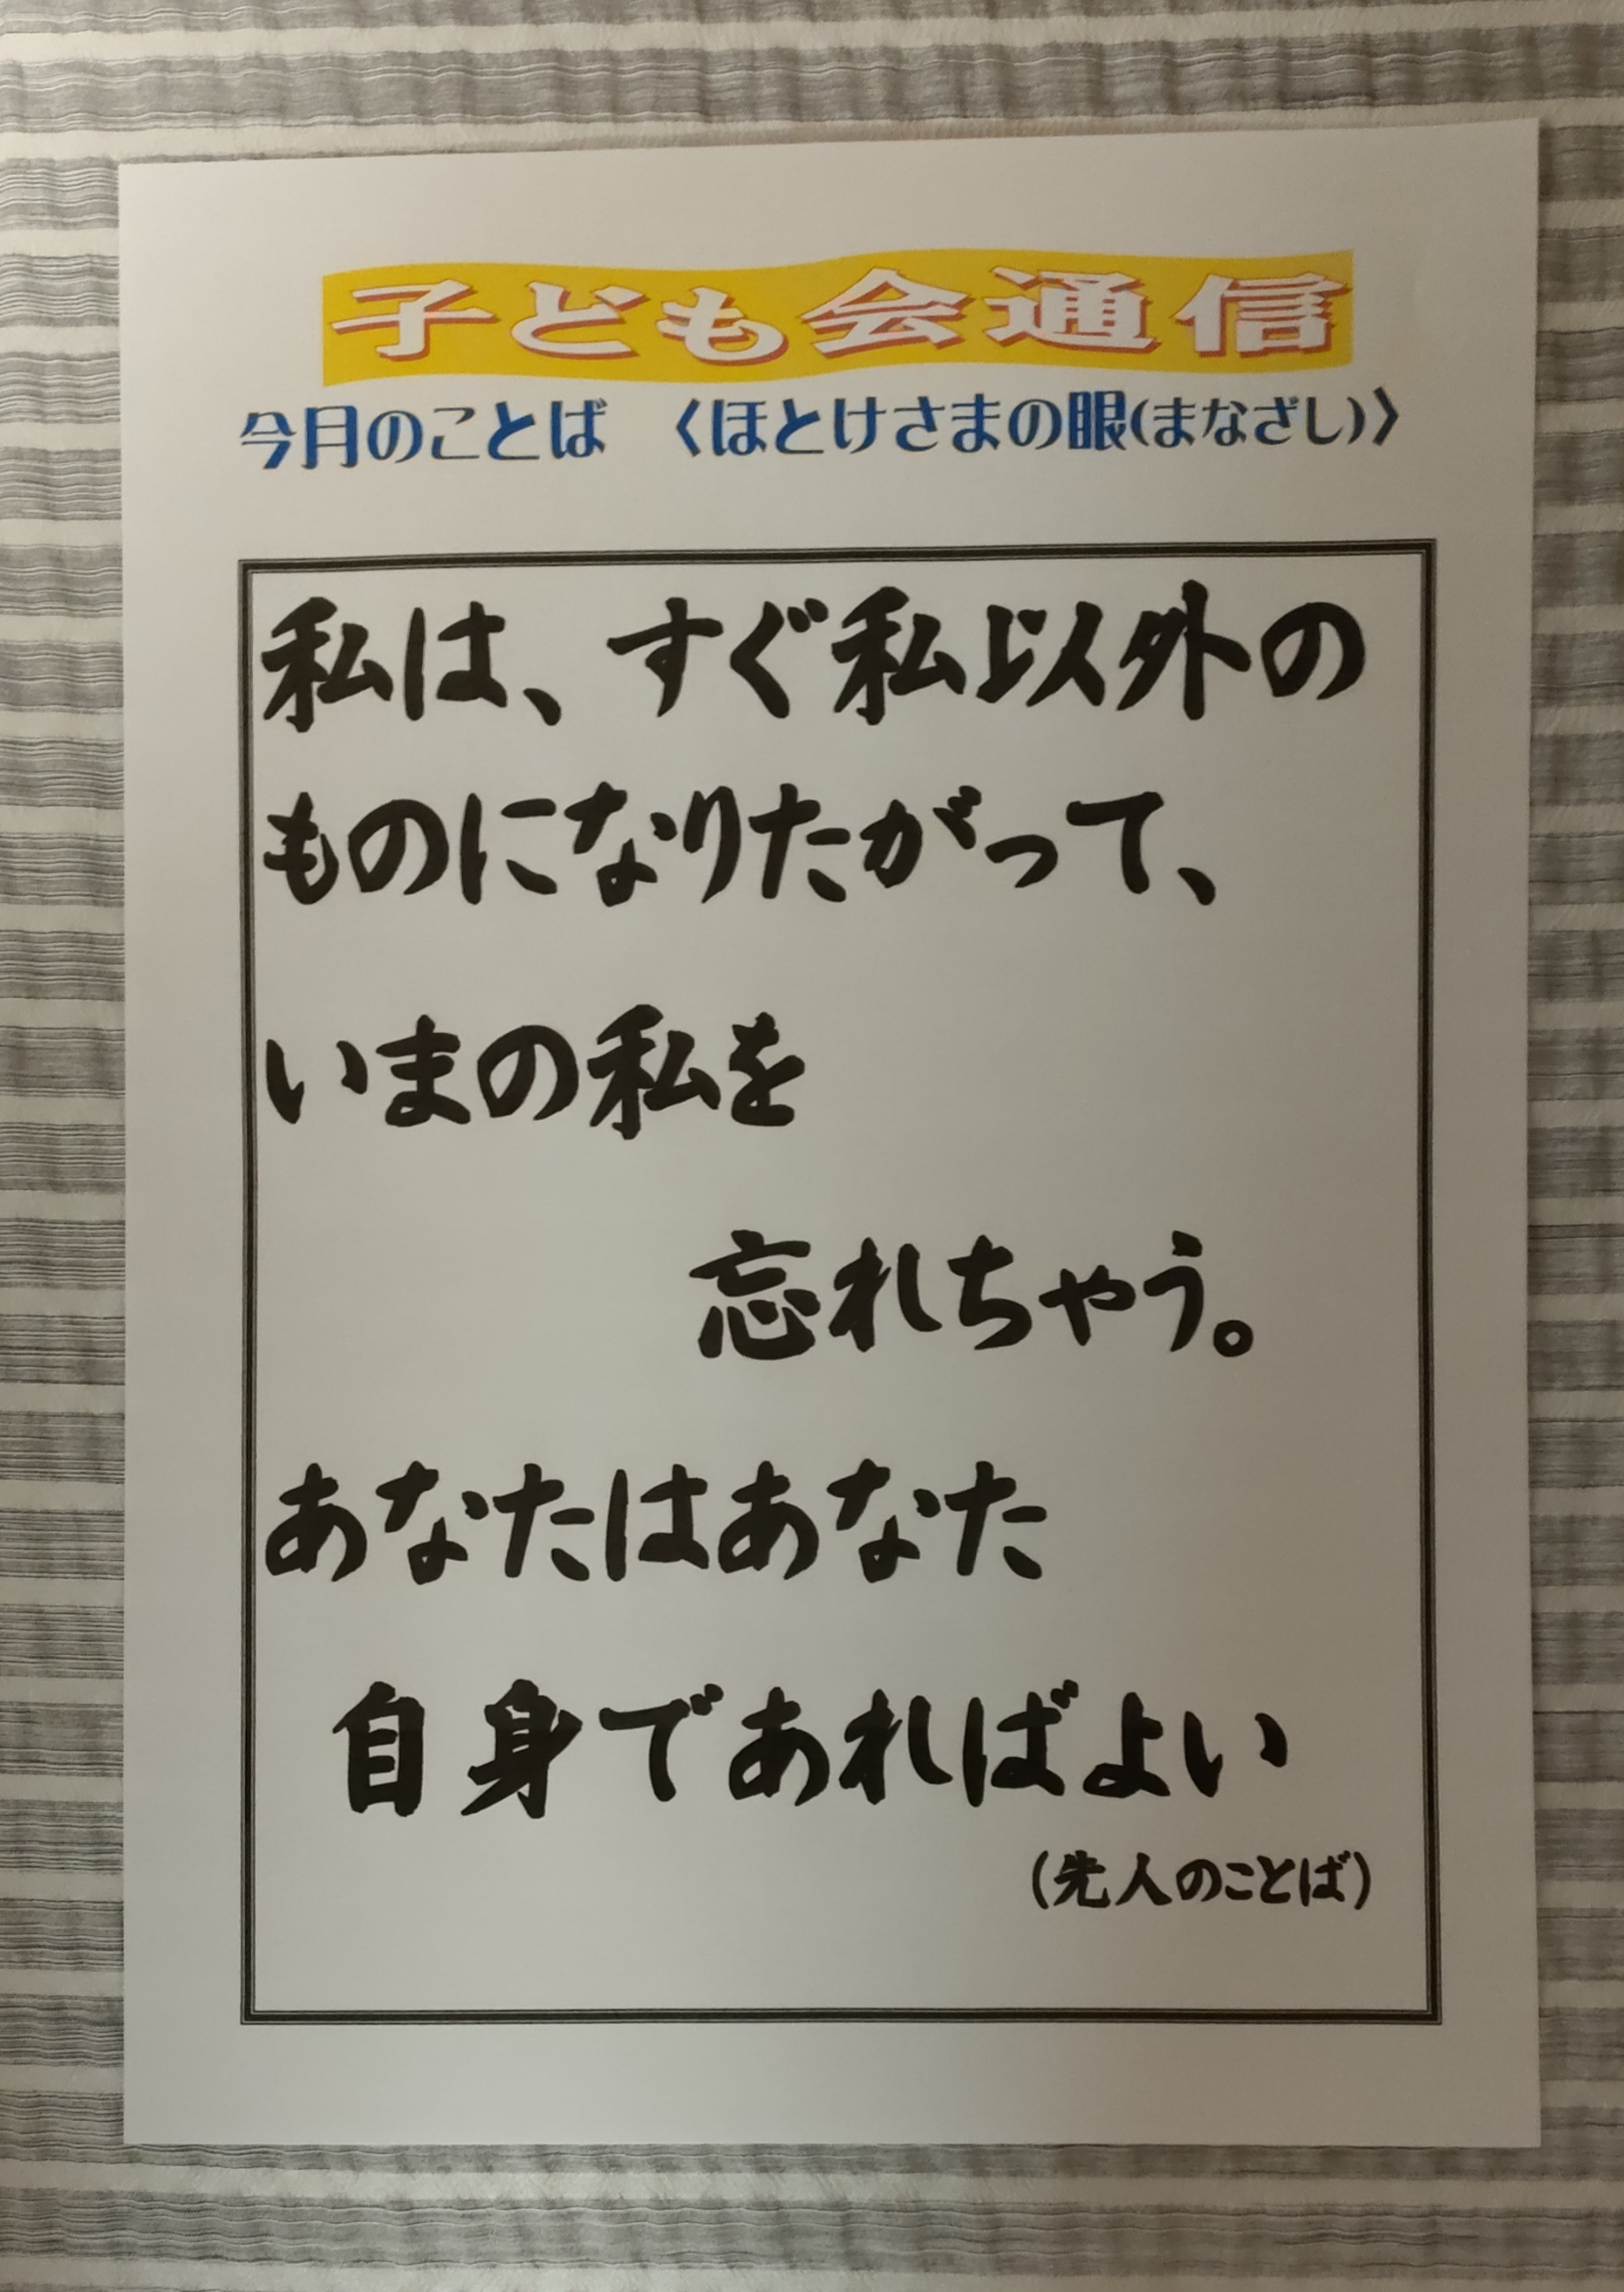 子ども会通信
今月のことば 〈ほとけさまの眼(まなざし)〉
私は、すぐ私以外の
ものになりたがって、
いまの私を
忘れちゃう。
あなたはあなた
自身であればよい
(先人のことば)